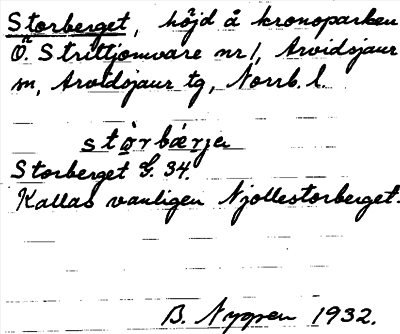 Storberget, höjd å kronoparken
Ö. Strittjomvare nr 1, Arvidsjaur
sn, Arvidsjaur tg, Norrb. l.
stòrbærje
Storberget G. 34.
Kallas vanligen Njollestorberget.
B. Nygren 1932.